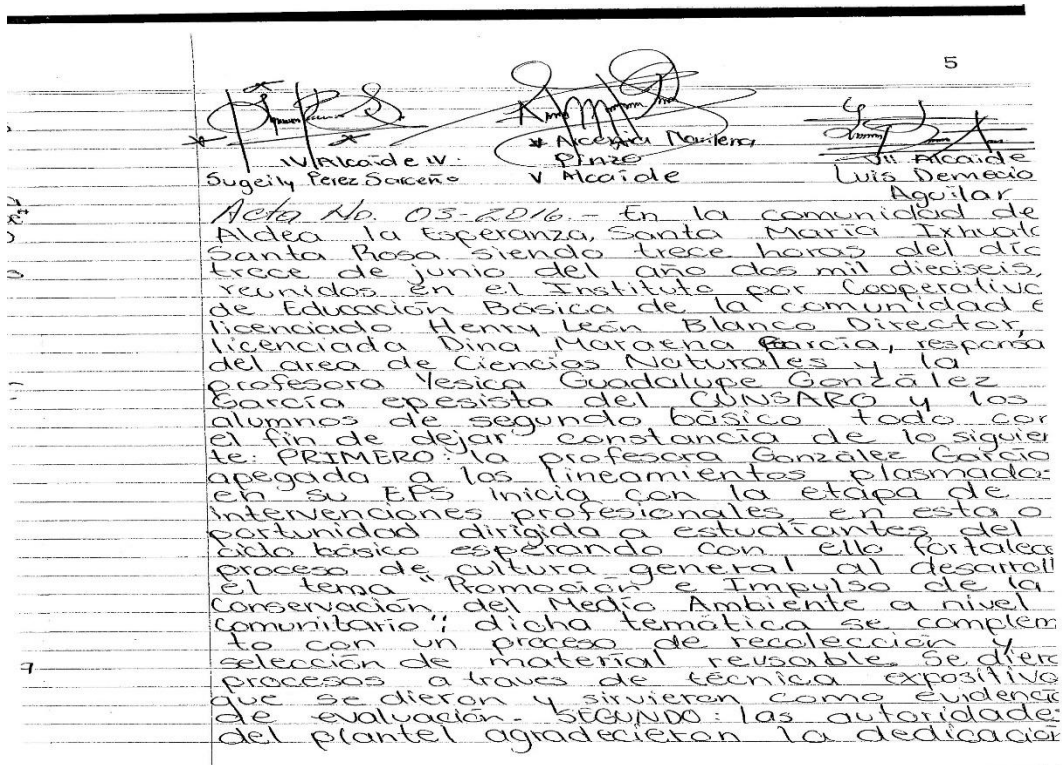 5
IV Alcaide IV.
Sugeily Perez Sarceño
Pinzo
V Alcaide
VII Alcaide
Luis Demecio
Aguilar
Acta No. 03-2016.- En la comunidad de
Aldea la Esperanza, Santa María Ixhuatá
Santa Rosa siendo trece horas del día
trece de junio del año dos mil dieciseis,
reunidos en el Instituto por Cooperativa
de Educación Básica de la comunidad e
licenciado Henry León Blanco Director,
licenciada Dina García, responsa
del area de Ciencias Naturales y la
profesora Yesica Guadalupe González
García epesista del CUNSARO y los
alumnos de segundo básico todo con
el fin de dejar constancia de lo siguien
te: PRIMERO: la profesora González García
apegada a los lineamientos plasmados
en su EPS inicia con la etapa de
intervenciones profesionales en esta o
portunidad dirigido a estudiantes del
ciclo básico esperando con ello fortalece
proceso de cultura general al desarroll
el tema "Promoción e Impulso de la
Conservación del Medio Ambiente a nivel
Comunitario"; dicha temática se complem
to con un proceso de recolección y
selección de material reusable. Se diero
procesos a traves de técnica expositiva
que se dieron y sirvieron como evidencia
de evaluación- SEGUNDO: las autoridades
del plantel agradecieron la dedicación